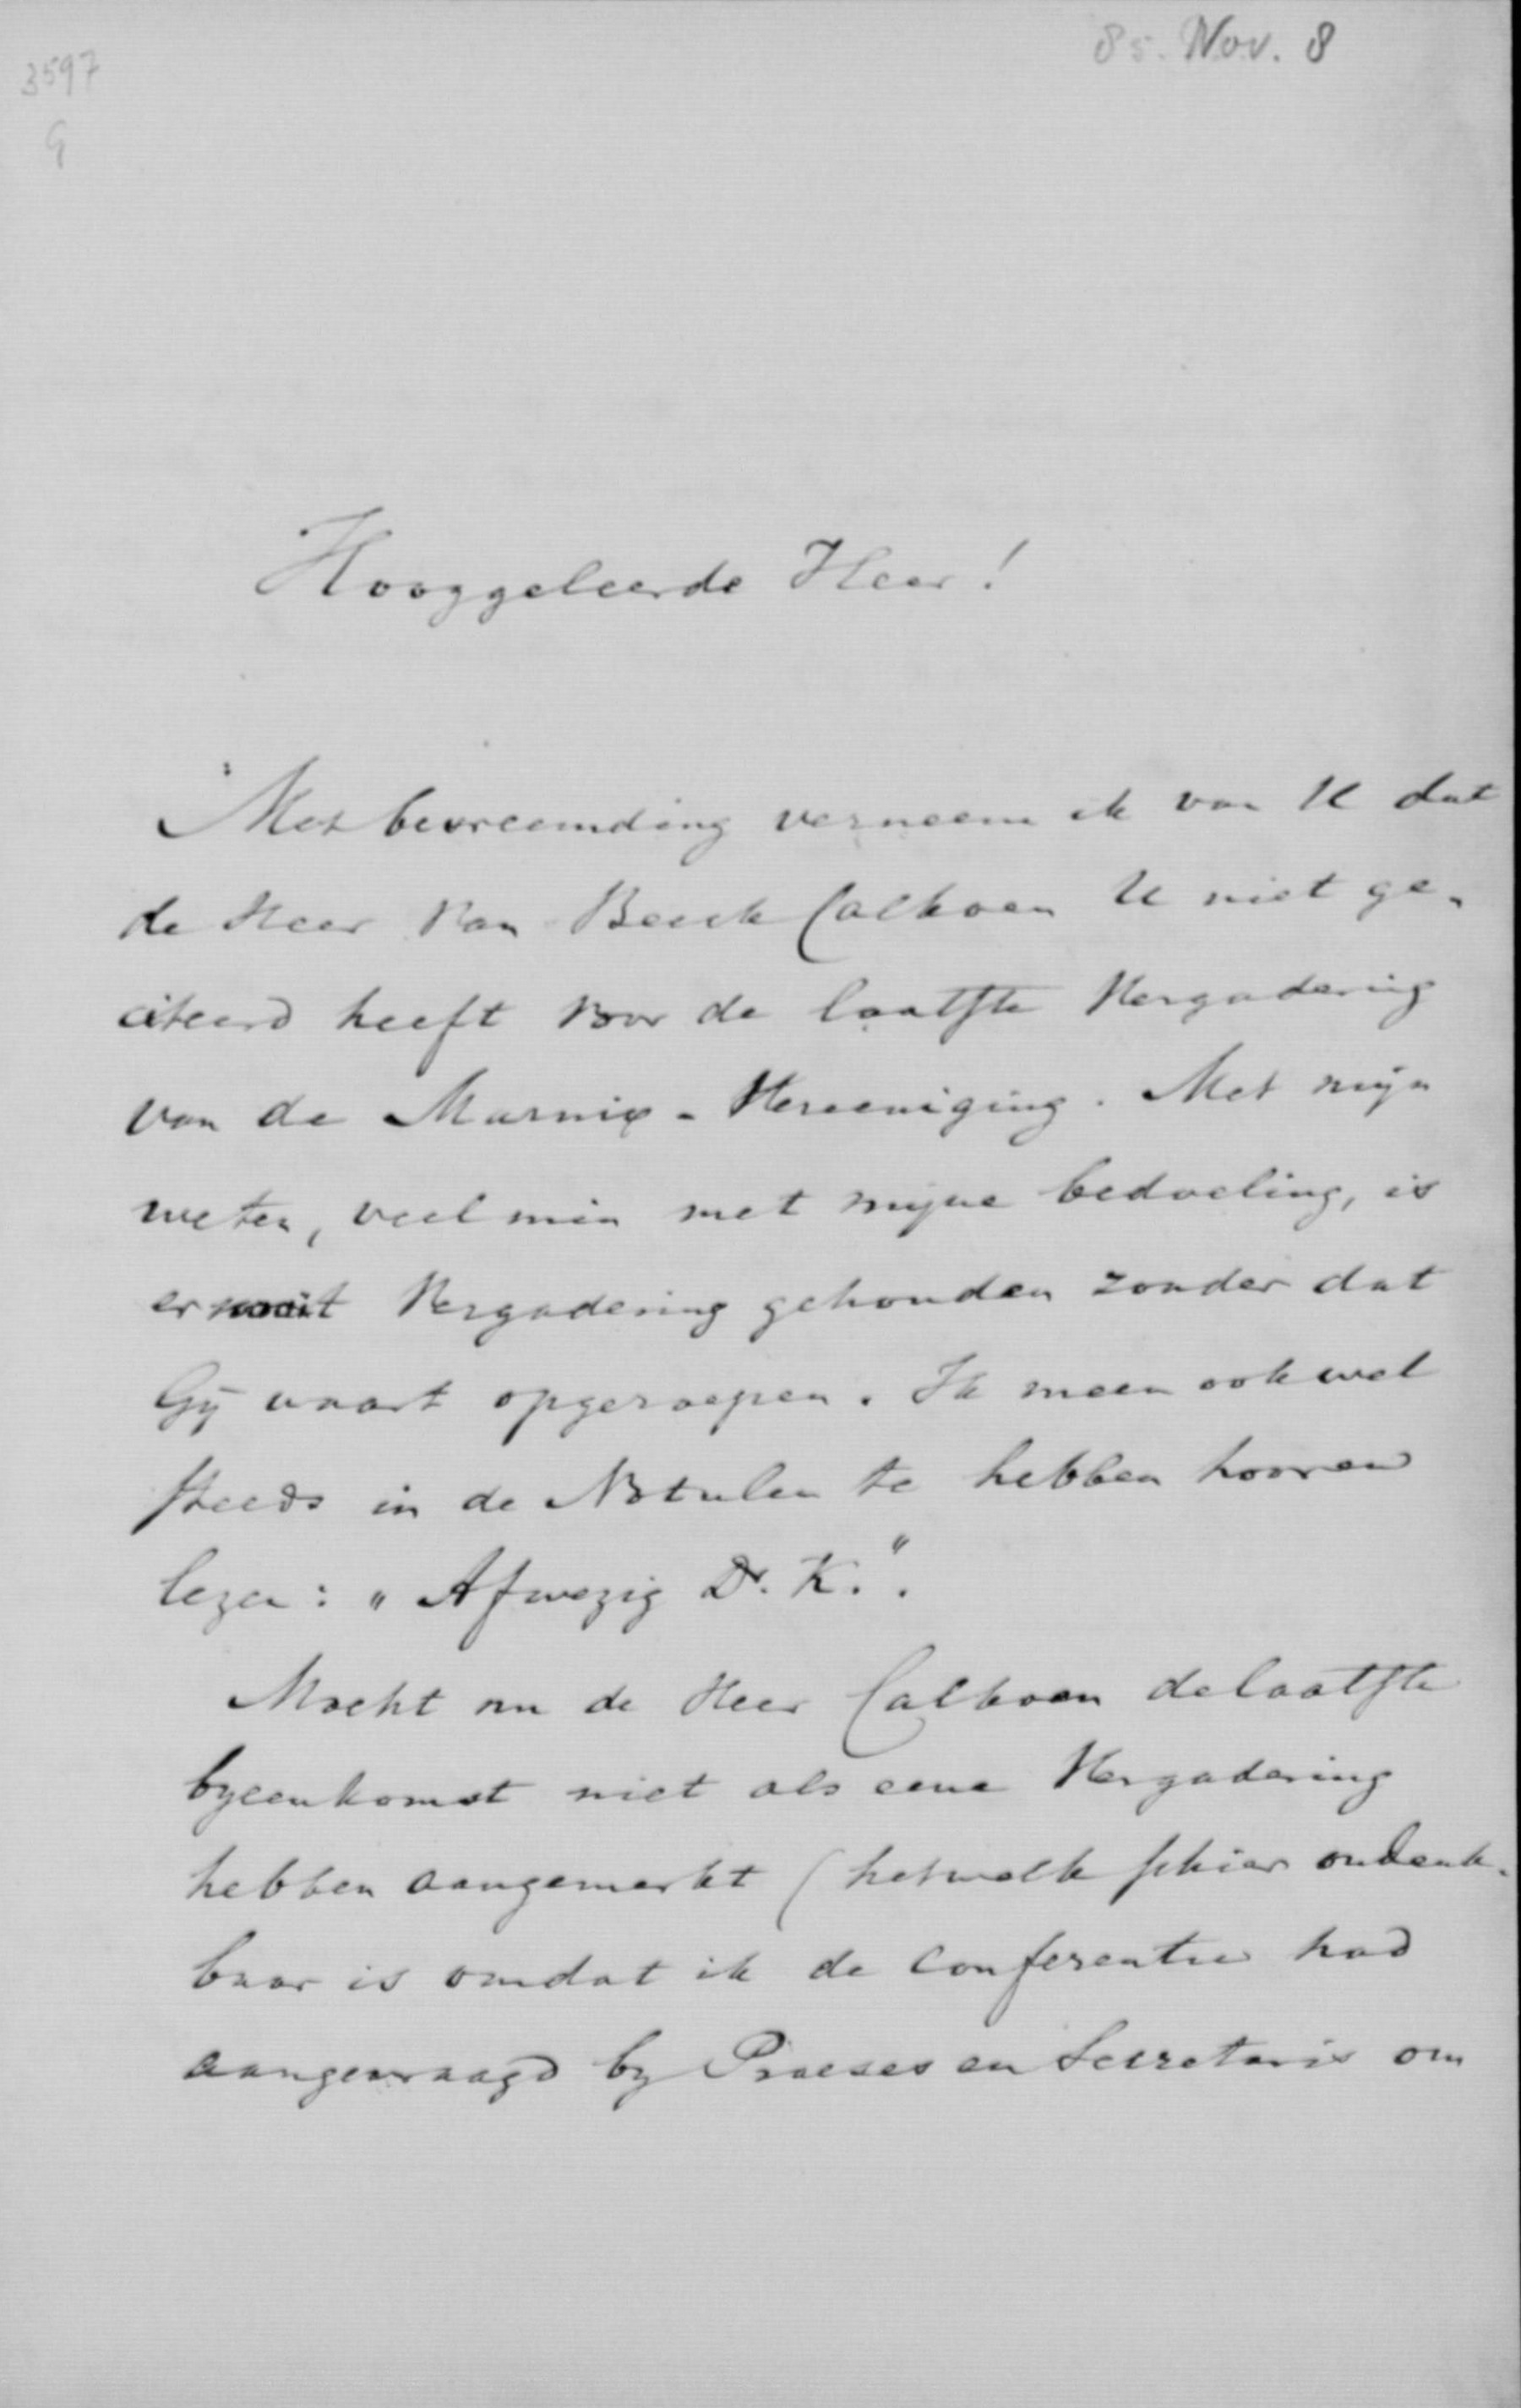 85. Nov. 8
3597
G
Hooggeleerde Heer!
Met bevreemding verneem ik van U dat
de Heer Van Beeck Calkoen U niet ge-
citeerd heeft voor de laatste Vergadering
van de Marnix-Vereeniging. Met mijn
weten, veelmin met mijne bedoeling, is
er nooit Vergadering gehouden zonder dat
Gij waart opgeroepen. Ik meen ook wel
steeds in de Notulen te hebben hooren
lezen: „Afwezig Dr. K.".
Mocht nu de Heer Calkoen de laatste
byeenkomst niet als eene Vergadering
hebben aangemerkt (hetwelk schier ondenk-
baar is omdat ik de conferentie had
aangevraagd by Praeses en Secretaris om